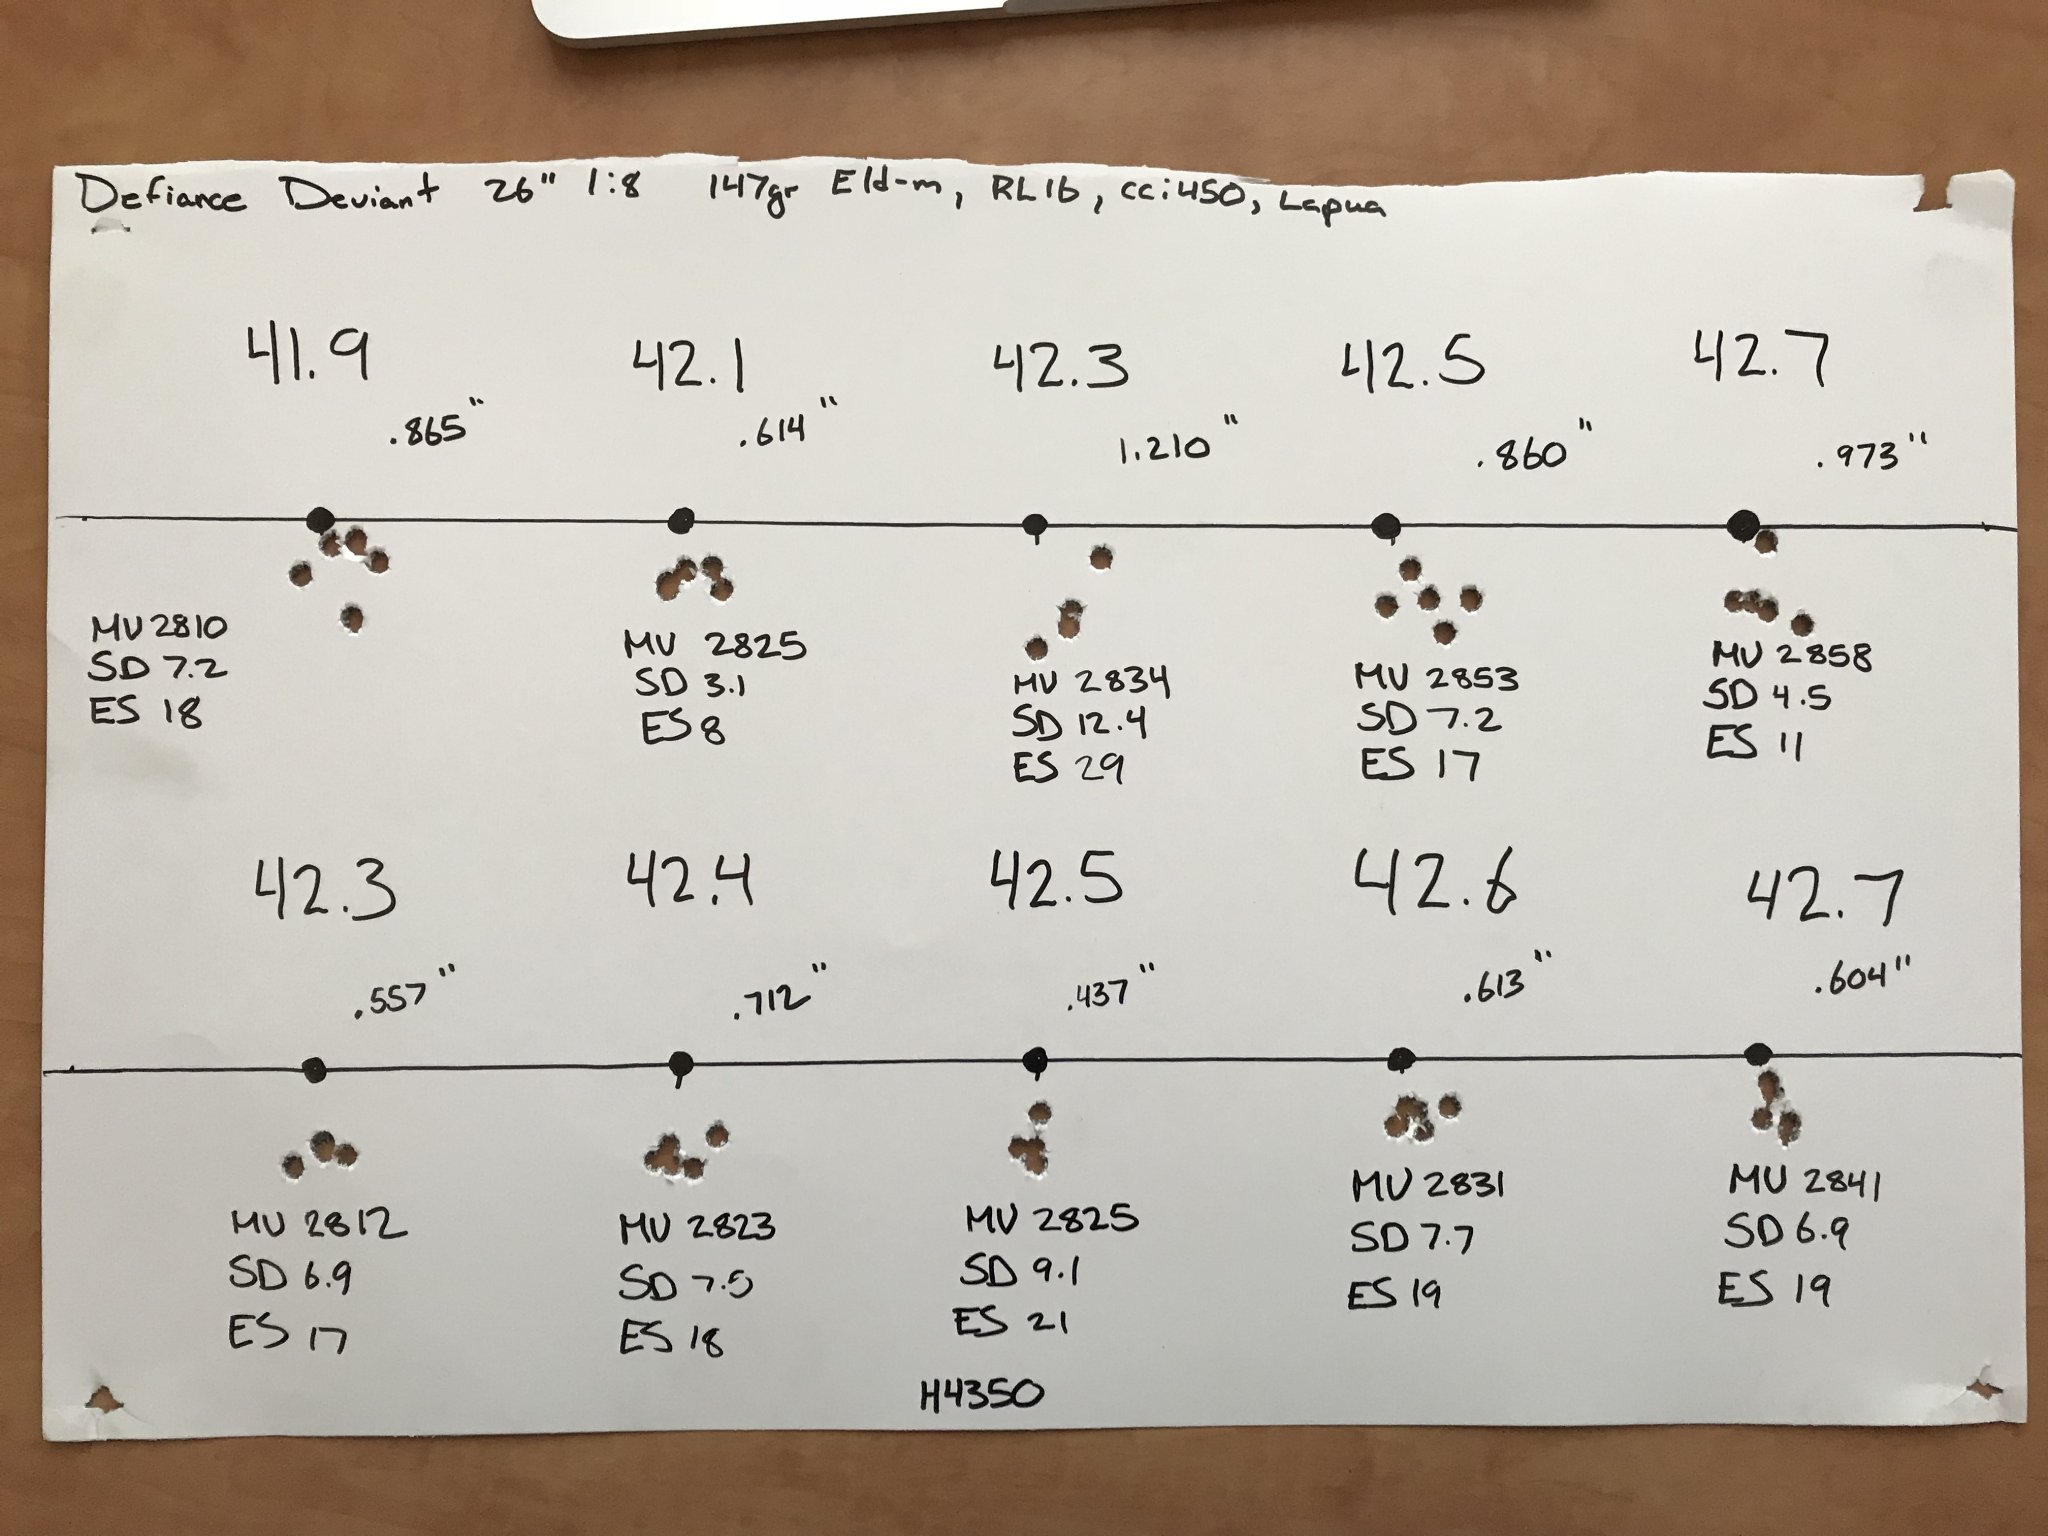 Defiance Deviant 26" 1:8 147gr Eld-m, RL16, cci450, Lapua
41.9 42.1 42.3 42.5 42.7
.865" .614" 1.210" .860" .973"
MV 2810 MV 2825 MV 2834 MV 2853 MV 2858
SD 7.2 SD 3.1 SD 12.4 SD 7.2 SD 4.5
ES 18 ES 8 ES 29 ES 17 ES 11
42.3 42.4 42.5 42.6 42.7
.557" .712" .437" .613" .604"
MV 2812 MV 2823 MV 2825 MV 2831 MV 2841
SD 6.9 SD 7.5 SD 9.1 SD 7.7 SD 6.9
ES 17 ES 18 ES 21 ES 19 ES 19
H4350